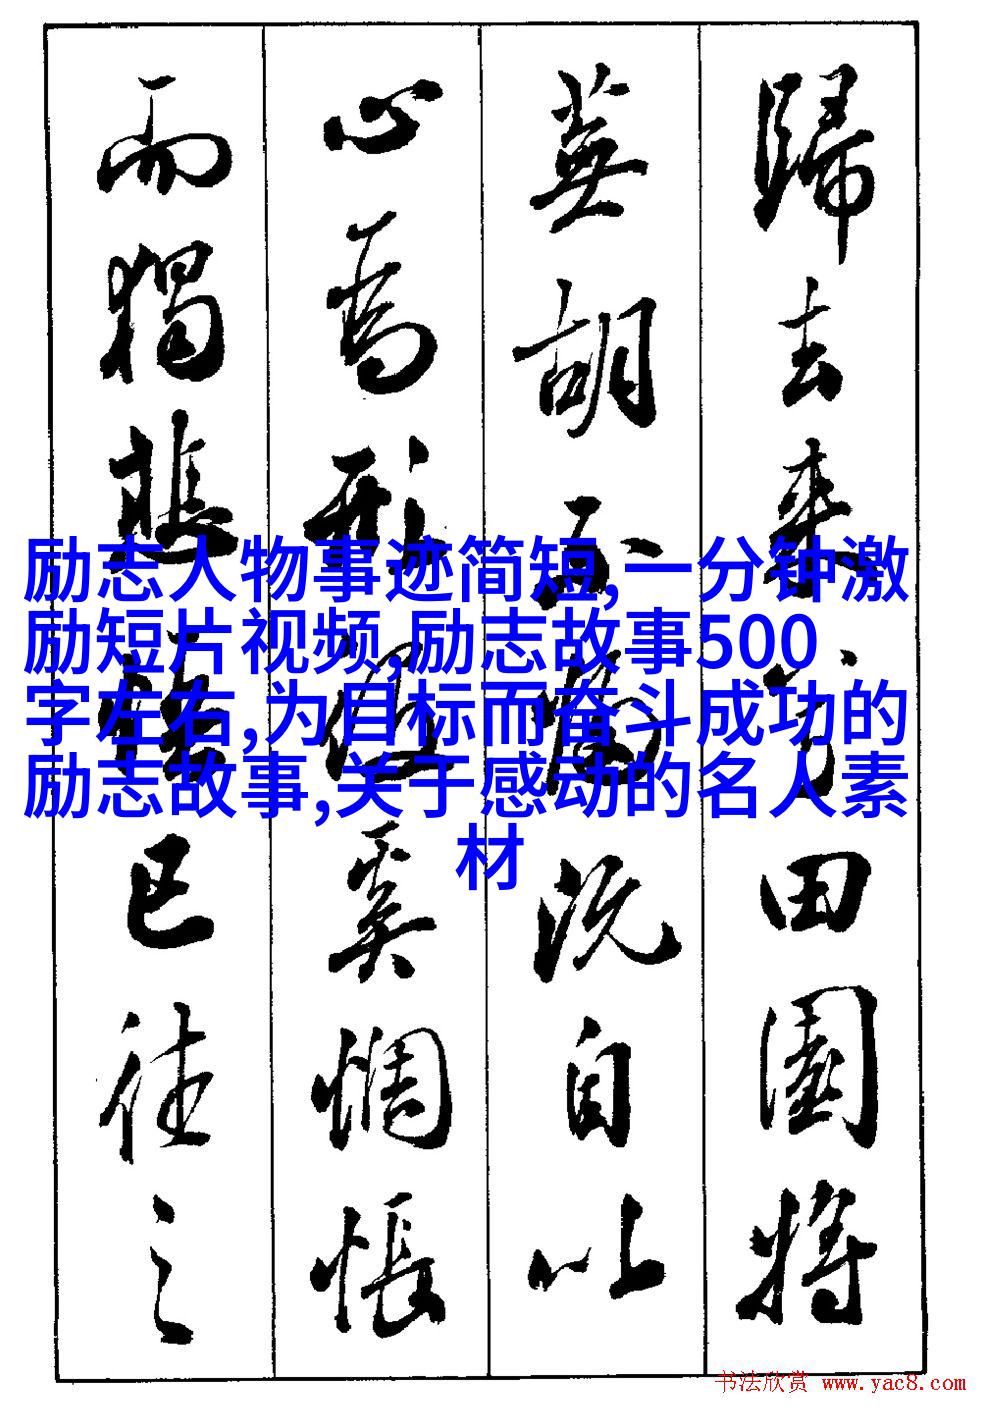 歸去来兮田園將
蕪胡不歸既自以
心為形役奚惆悵
而獨悲悟已往之
励志人物事迹简短,一分钟激
励短片视频,励志故事500
字左右,为目标而奋斗成功的
励志故事,关于感动的名人素
材
书法欣赏 www.yac8.com